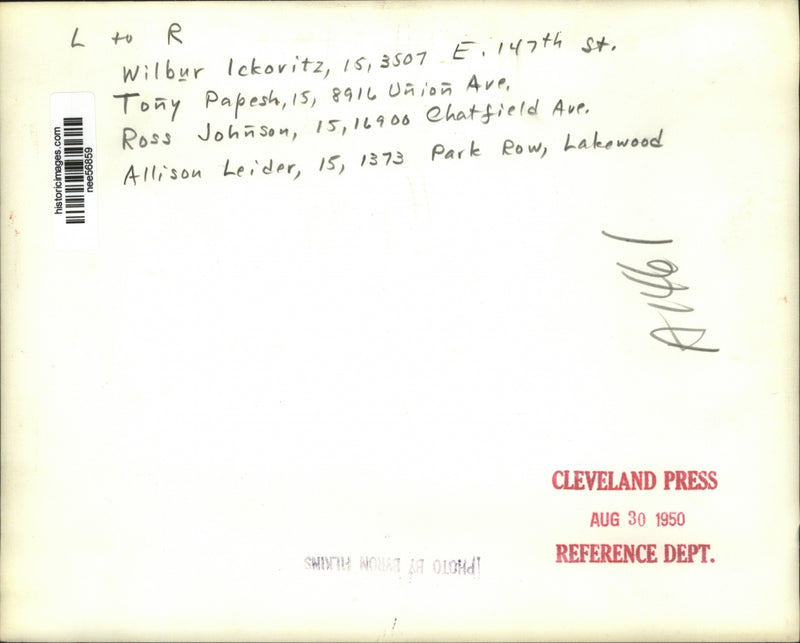 L to R
Wilbur Ickovitz, 15, 3507 E. 147th St.
Tony Papesh, 15, 8916 Union Ave.
Ross Johnson, 15, 16900 Chatfield Ave.
Allison Leider, 15, 1373 Park Row, Lakewood
historicimages.com
nee56859
A1461
CLEVELAND PRESS
AUG 30 1950
REFERENCE DEPT.
PHOTO BY BYRON FILKINS